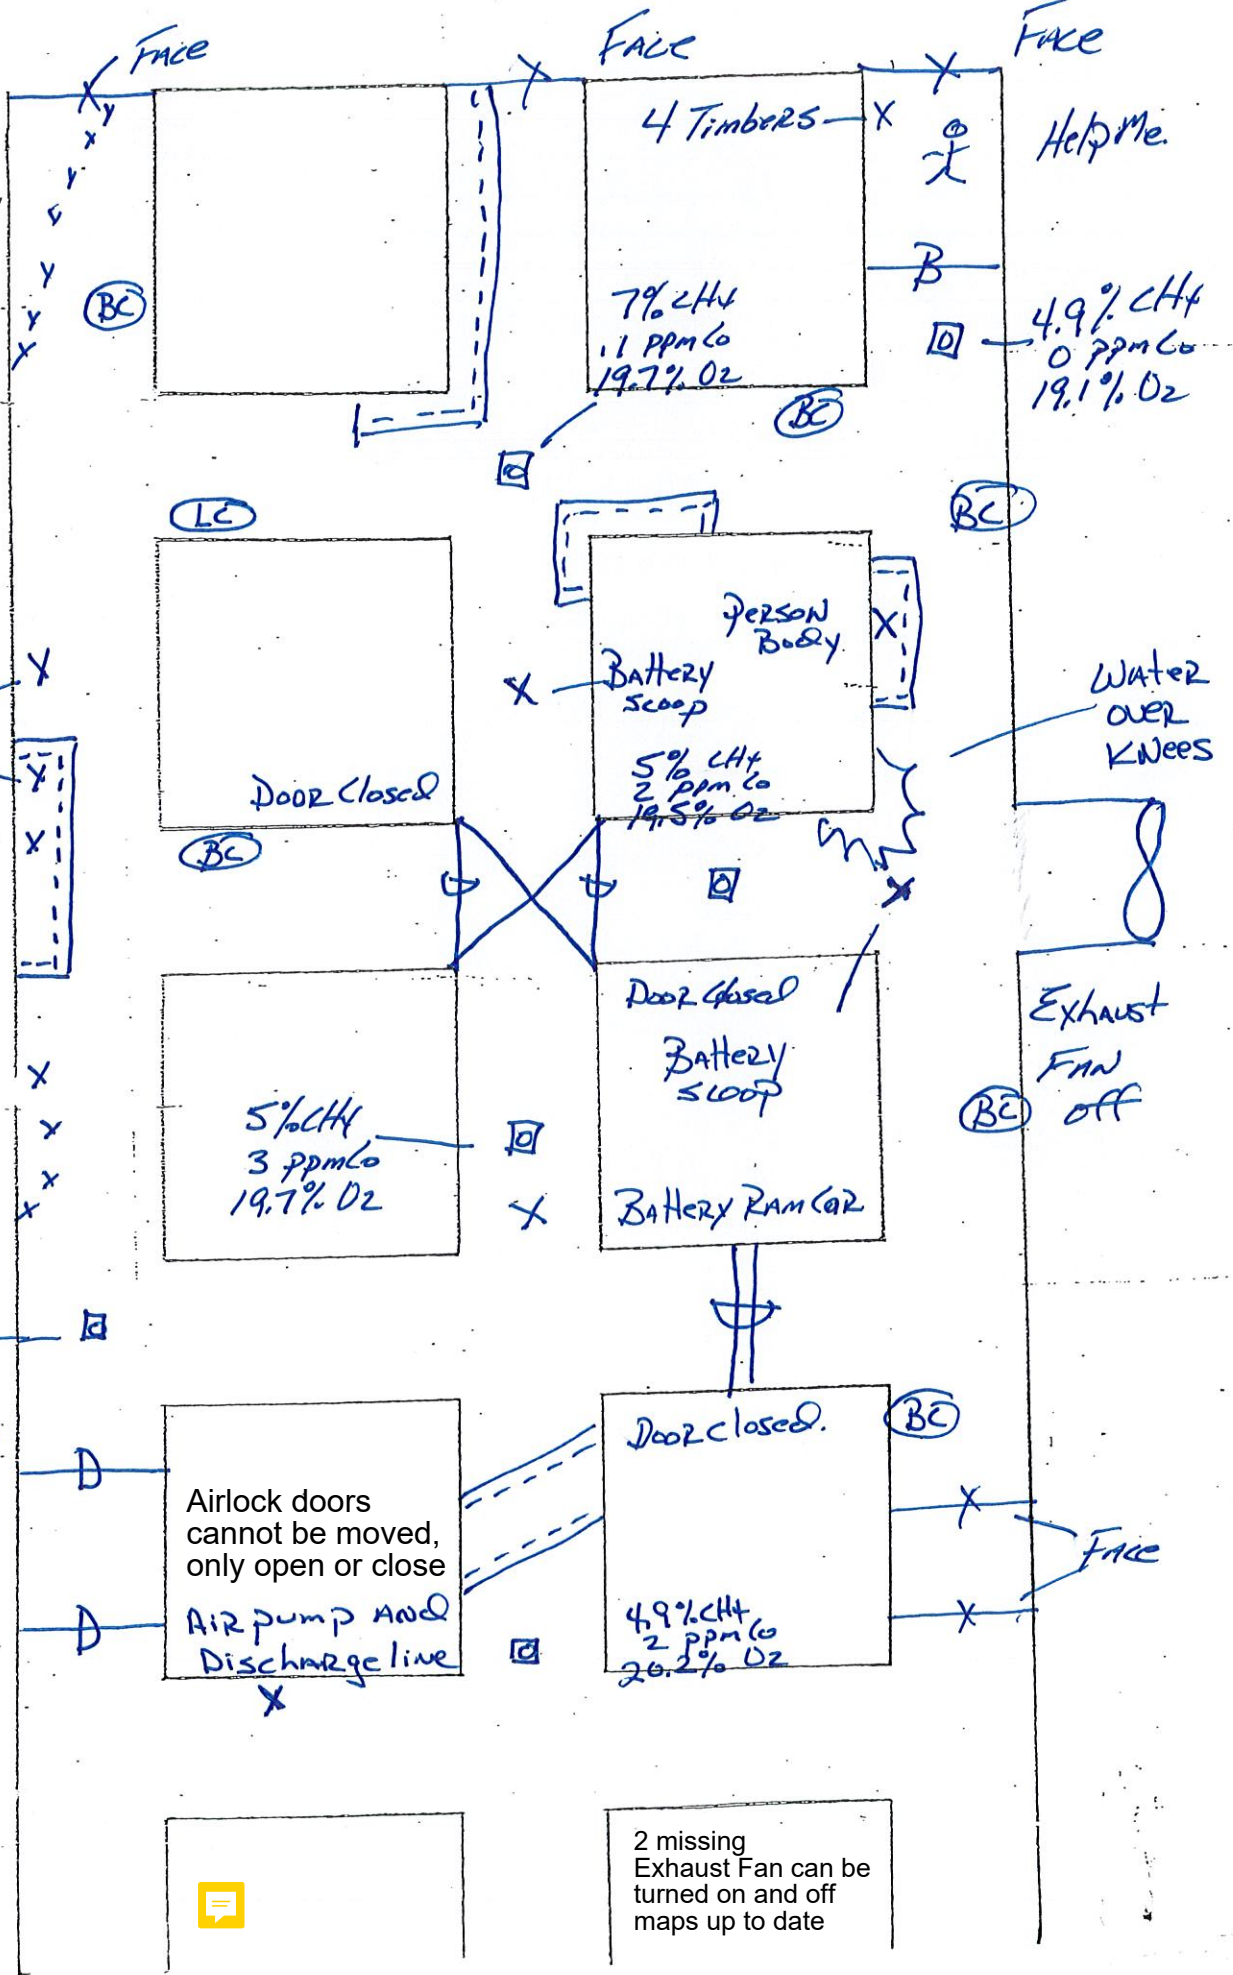 Face
Face
Face
X
X
X
4 Timbers
X
Help Me.
B
BC
7% CH4
.1 ppm Co
19.7% O2
4.9% CH4
0 ppm Co
19.1% O2
BC
LC
BC
Person
Body
X
Battery
scoop
X
Water
over
Knees
5% CH4
2 ppm Co
19.5% O2
Door Closed
BC
X
Door Closed
Battery
scoop
Exhaust
Fan
off
BC
5% CH4
3 ppm Co
19.7% O2
X
Battery Ram Car
Door Closed.
BC
D
Airlock doors
cannot be moved,
only open or close
X
Face
D
Air pump and
Discharge line
X
4.9% CH4
2 ppm Co
20.2% O2
X
2 missing
Exhaust Fan can be
turned on and off
maps up to date